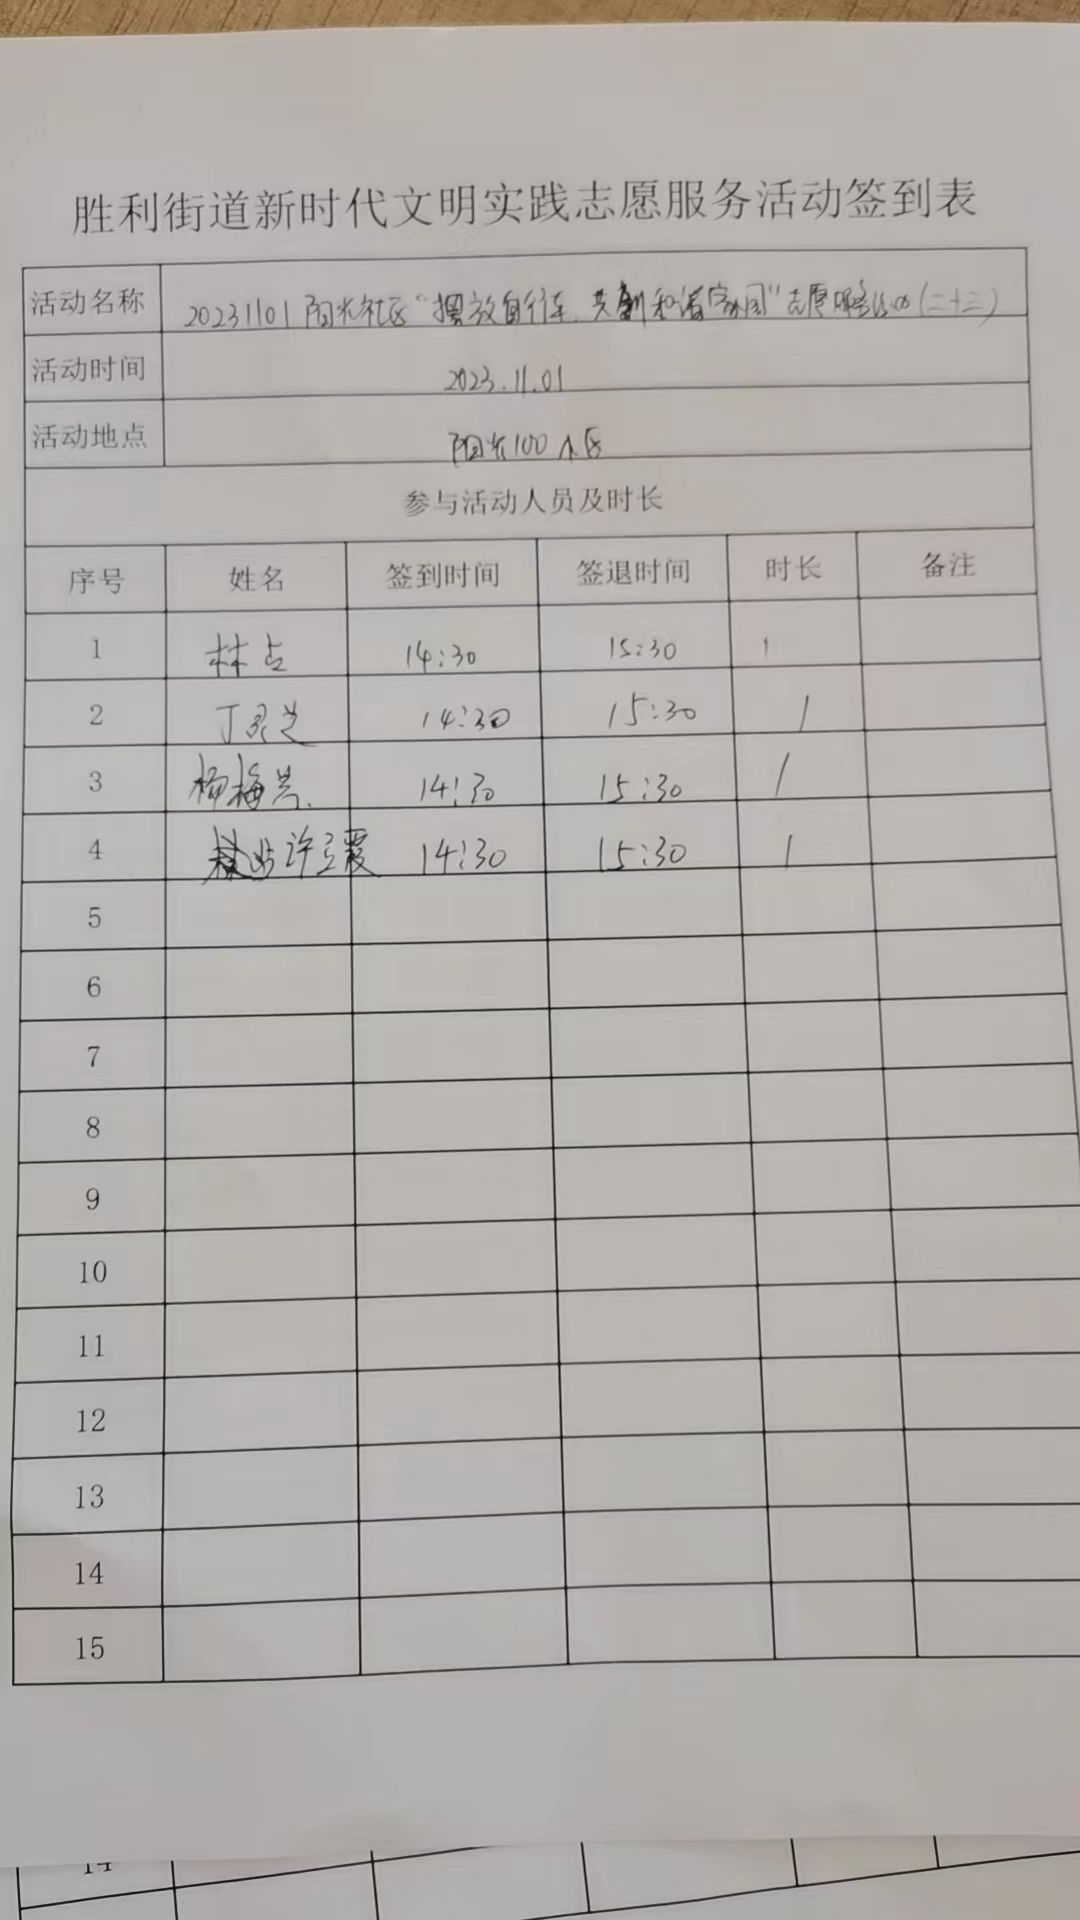 胜利街道新时代文明实践志愿服务活动签到表
活动名称 20231101阳光社区“摆放自行车、共创和谐家园”志愿服务活动(二十三)
活动时间 2023.11.01
活动地点 阳光100小区
参与活动人员及时长
序号 姓名 签到时间 签退时间 时长 备注
1 林占 14:30 15:30 1
2 丁灵芝 14:30 15:30 1
3 杨梅兰 14:30 15:30 1
4 许立霞 14:30 15:30 1
5
6
7
8
9
10
11
12
13
14
15
14